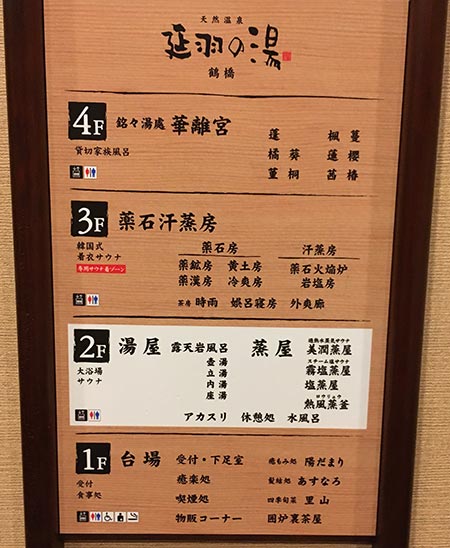 天然温泉
延羽の湯
鶴橋
4F 銘々湯處 華離宮
貸切家族風呂
蓬 楓 蔓
橘 葵 蓮 櫻
菫 桐 茜 椿
3F 薬石汗蒸房
韓国式
着衣サウナ
専用サウナ着ゾーン
薬石房 汗蒸房
薬鉱房 黄土房 薬石火焔炉
薬漢房 冷爽房 岩塩房
茶房 時雨 娯呂寝房 外爽廊
2F 湯屋 露天岩風呂 蒸屋
大浴場
サウナ
壺湯
立湯
内湯
座湯
過熱水蒸気サウナ
美潤蒸屋
スチーム塩サウナ
霧塩蒸屋
塩蒸屋
ロウリュウ
熱風蒸釜
アカスリ 休憩処 水風呂
1F 台場
受付
食事処
受付・下足室 癒もみ処 陽だまり
癒楽処 髪結処 あすなろ
喫煙処 四季旬菜 里山
物販コーナー 囲炉裏茶屋